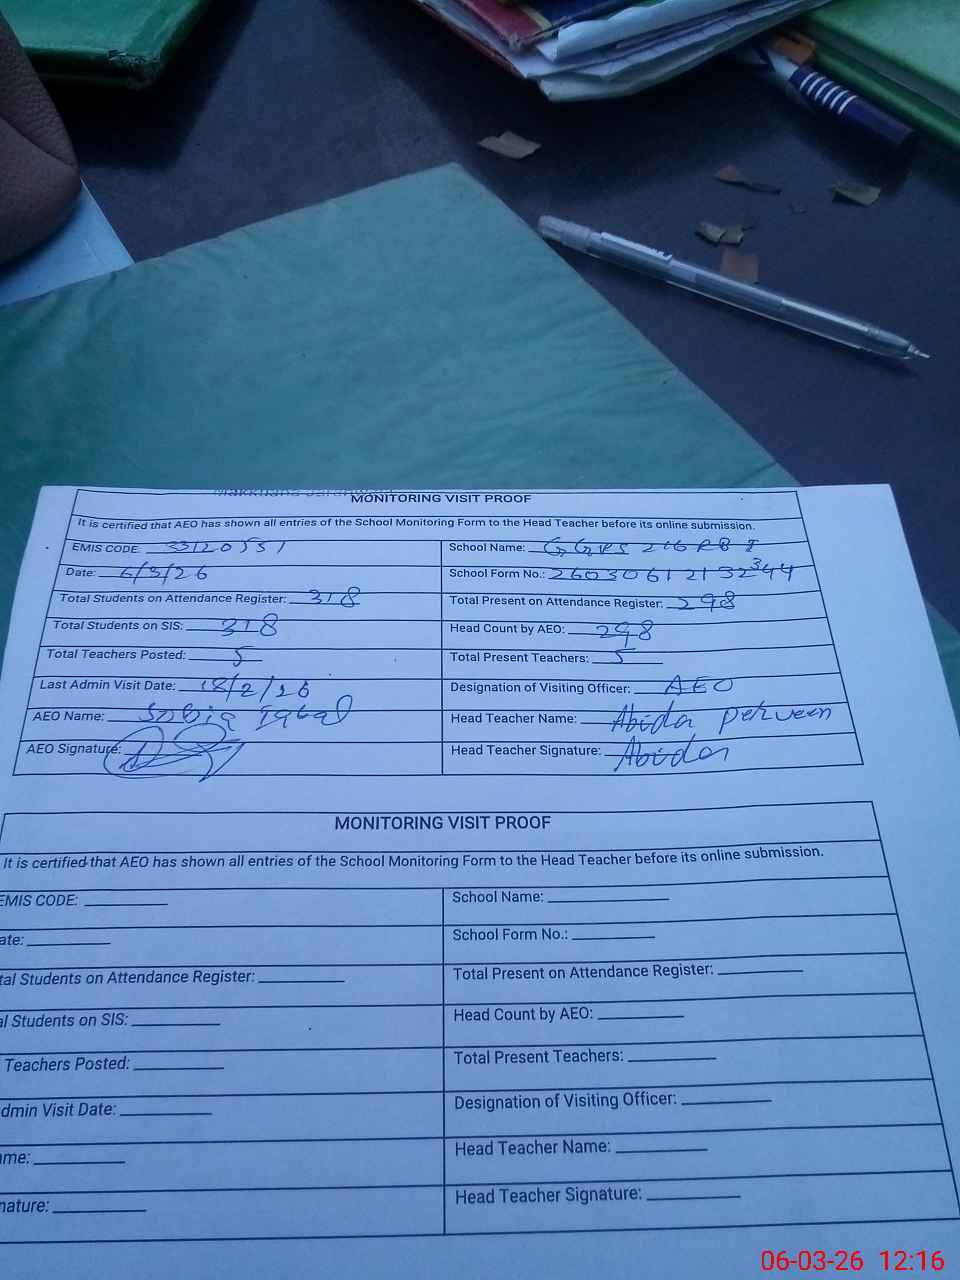 MONITORING VISIT PROOF
It is certified that AEO has shown all entries of the School Monitoring Form to the Head Teacher before its online submission.
EMIS CODE: 33120551 School Name: GGPS 216 RB I
Date: 6/3/26 School Form No.: 26030612132344
Total Students on Attendance Register: 318 Total Present on Attendance Register: 298
Total Students on SIS: 318 Head Count by AEO: 298
Total Teachers Posted: 5 Total Present Teachers: 5
Last Admin Visit Date: 18/2/26 Designation of Visiting Officer: AEO
AEO Name: Sobia Iqbal Head Teacher Name: Abida perveen
AEO Signature: Head Teacher Signature: Abida
MONITORING VISIT PROOF
It is certified that AEO has shown all entries of the School Monitoring Form to the Head Teacher before its online submission.
EMIS CODE: School Name:
ate: School Form No.:
tal Students on Attendance Register: Total Present on Attendance Register:
al Students on SIS: Head Count by AEO:
Teachers Posted: Total Present Teachers:
dmin Visit Date: Designation of Visiting Officer:
me: Head Teacher Name:
nature: Head Teacher Signature:
06-03-26 12:16